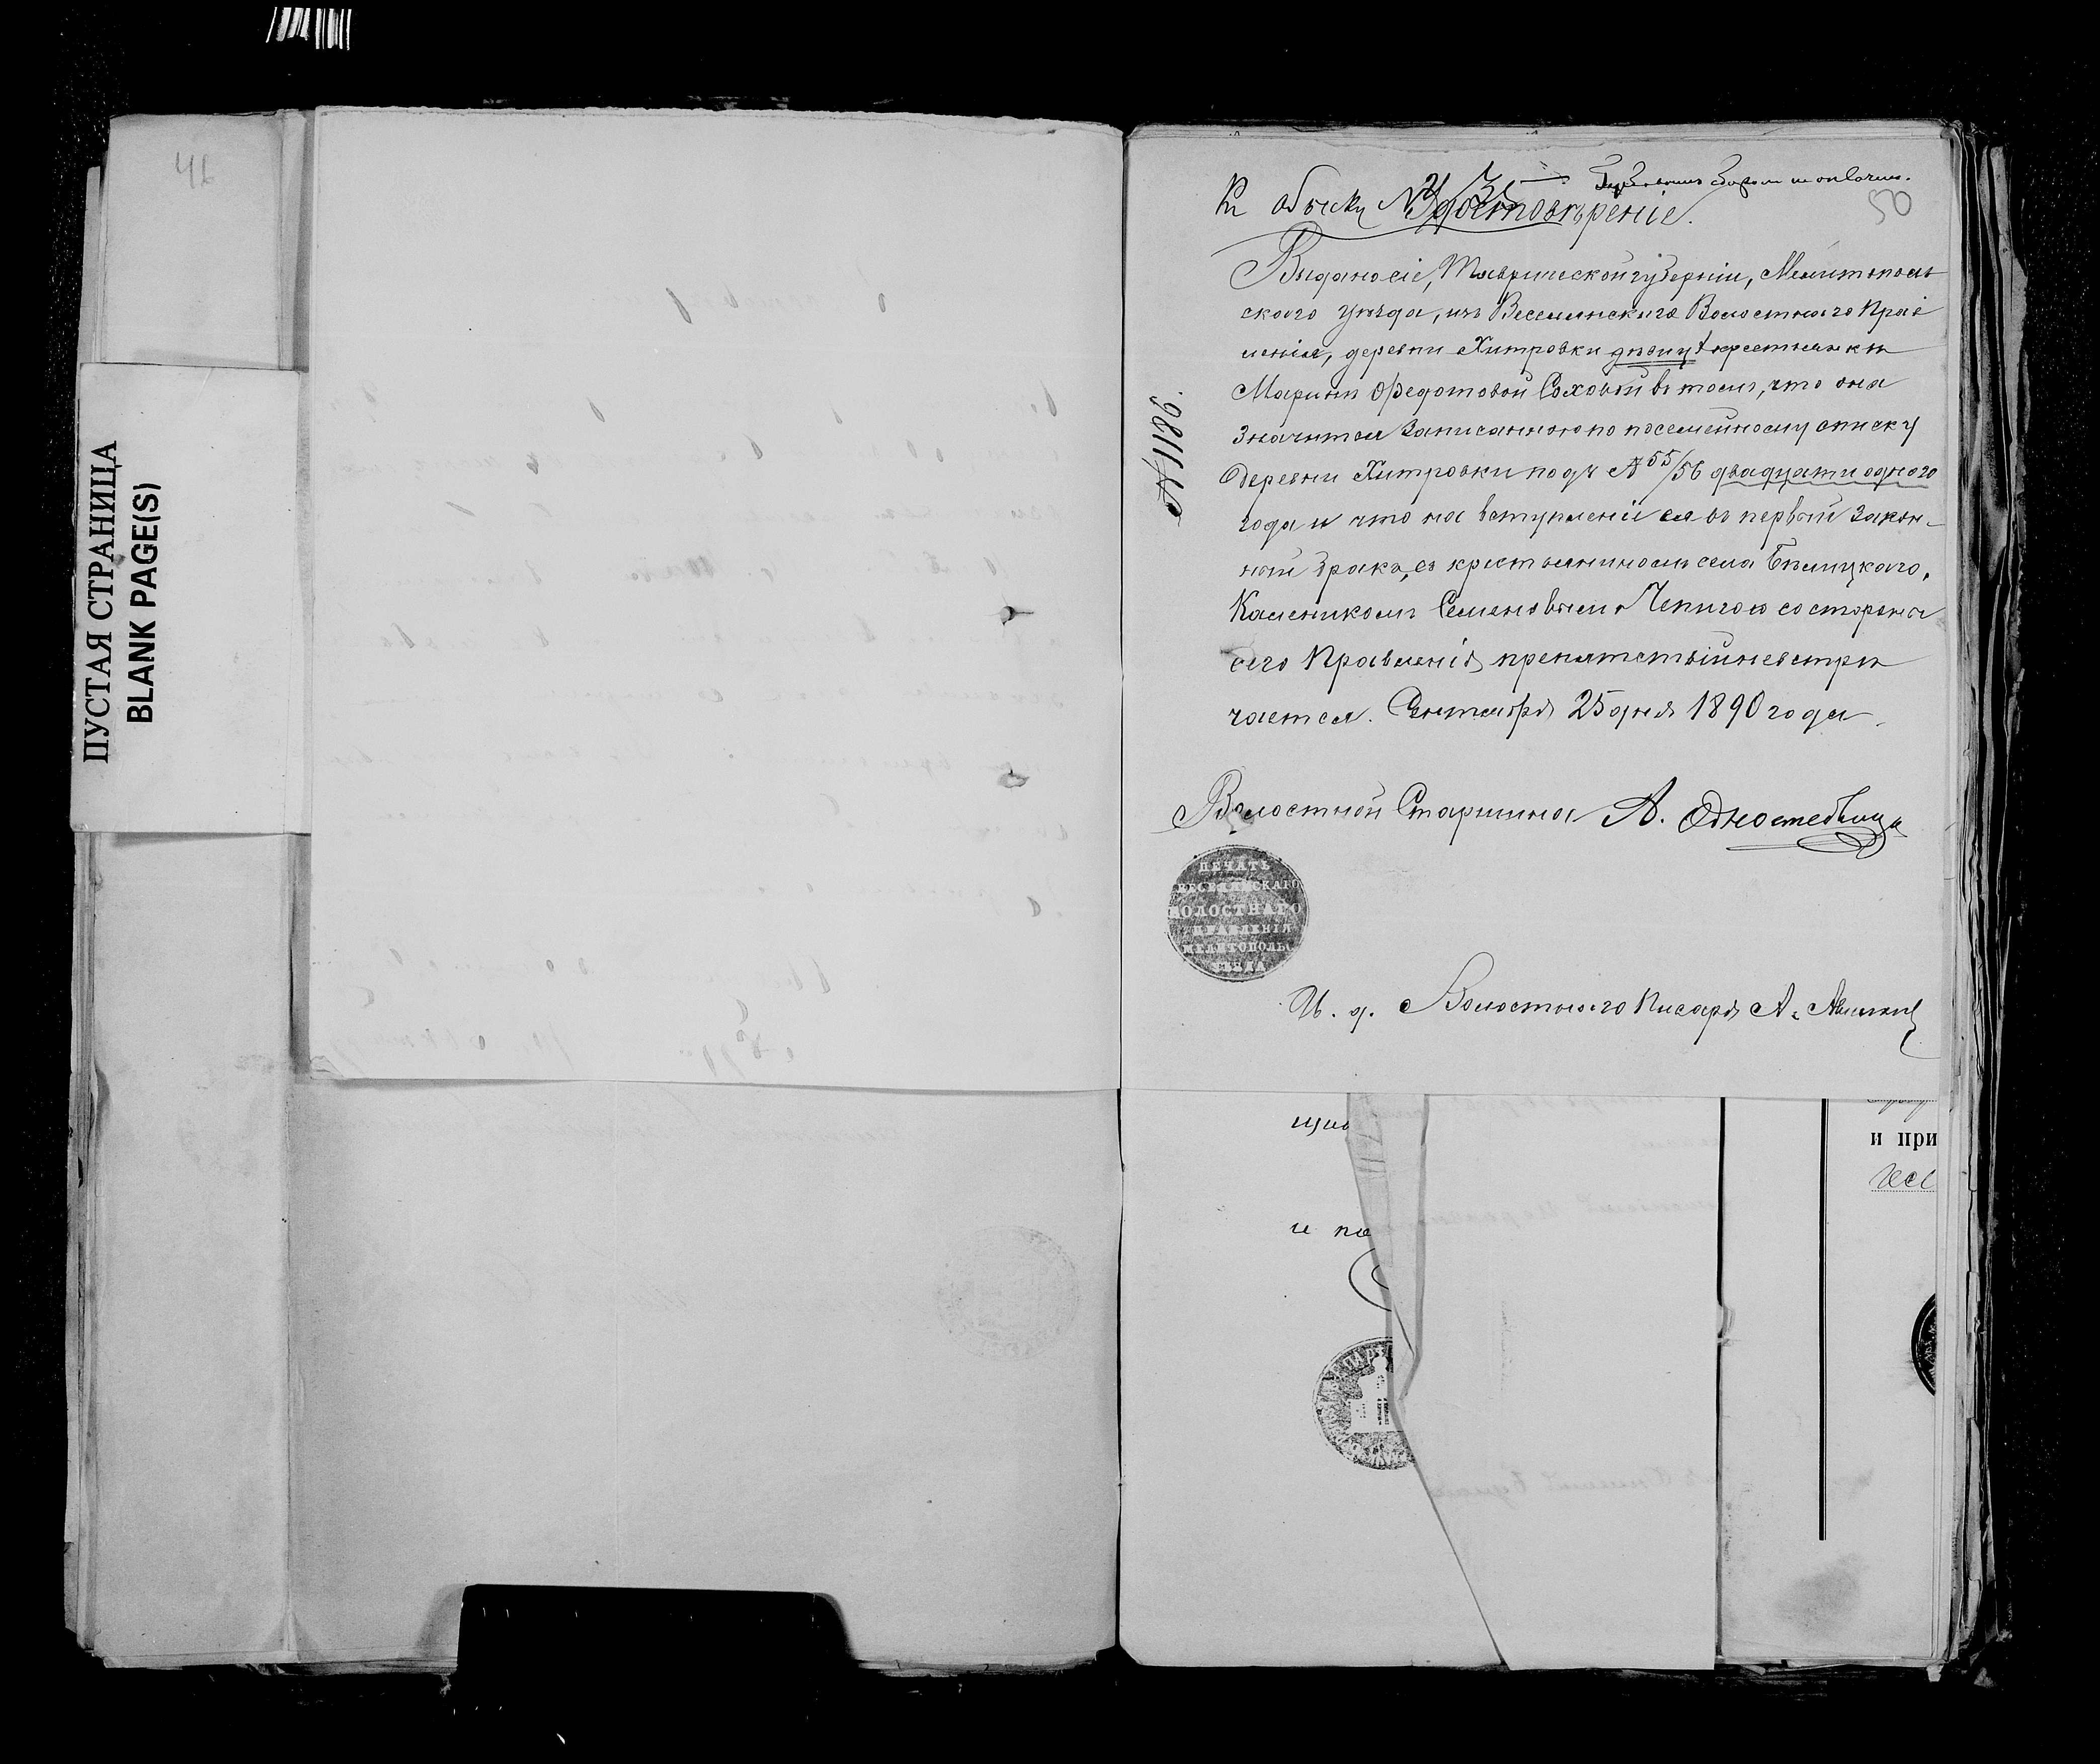 46
ПУСТАЯ СТРАНИЦА
BLANK PAGE(S)
Къ обыску № 35
50
Удостовѣреніе.
Выдано сіе, Таврической губерніи, Мелитополь
скаго уѣзда, изъ Веселянскаго Волостнаго Прав
ленія, деревни Хитровки дѣвицѣ крестьянкѣ
Маринѣ Федотовой Соховой въ томъ, что она
значится записанною по посемейному списку
деревни Хитровки подъ № 55/56 двадцати одного
года и что на вступленіи ея въ первый закон-
ный бракъ, съ крестьяниномъ села Бѣлицкаго,
Калениkомъ Семеновымъ Чепигою со стороны
сего Правленія препятствій не встрѣ
чается. Сентября 25 дня 1890 года
№ 1186.
Волостной Старшина А.
ПЕЧАТЬ
ВЕСЕЛЯНСКАГО
ВОЛОСТНАГО
ПРАВЛЕНІЯ
МЕЛИТОПОЛЬС
УѢЗДА
И. д. Волостнаго Писаря А.
щи
и по
и при